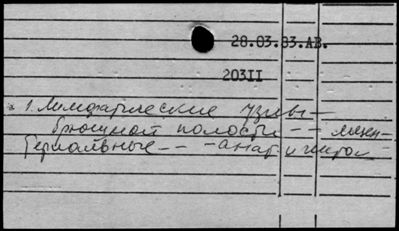 28.03.83.АВ.
203II
1. Лимфатические узлы —
брюшной полости — — мезен-
териальные — — анат. и гистол